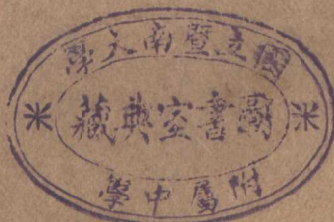 國立暨南大學
圖書室典藏
附屬中學